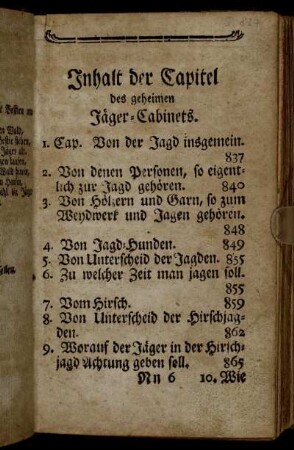 Inhalt der Capitel
des geheimen
Jäger-Cabinets.
1. Cap. Von der Jagd insgemein.
837
2. Von denen Personen, so eigent-
lich zur Jagd gehören. 840
3. Von Hölzern und Garn, so zum
Weydwerk und Jagen gehören.
848
4. Von Jagd-Hunden. 849
5. Von Unterscheid der Jagden. 855
6. Zu welcher Zeit man jagen soll.
855
7. Vom Hirsch. 859
8. Von Unterscheid der Hirschjag-
den. 862
9. Worauf der Jäger in der Hirsch-
jagd Achtung geben soll. 865
Nn 6 10. Wie